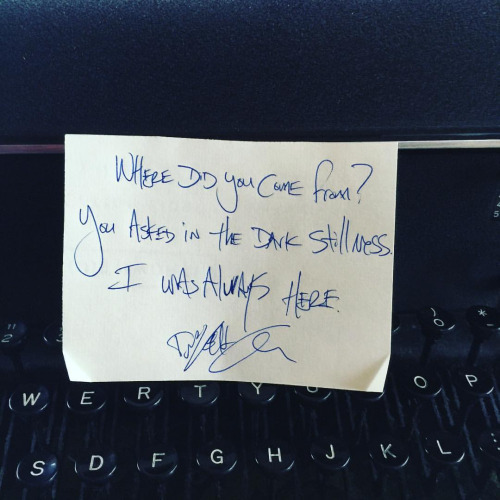 WHERE DID you COME from?
You ASKED in the DARK Stillness.
I WAS AlWAYS HERE.
W E R T Y U O P
S D F G H J K L